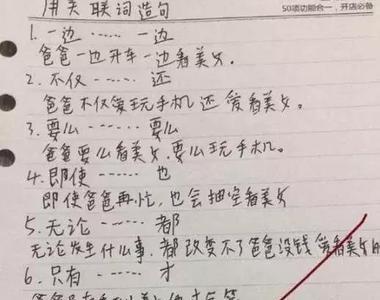 用关联词造句
50项功能合一，开店必备
1. 一边 …… 一边
爸爸一边开车一边看美女。
2. 不仅 …… 还
爸爸不仅爱玩手机还爱看美女。
3. 要么 …… 要么
爸爸要么看美女，要么玩手机。
4. 即使 …… 也
即使爸爸再忙，也会抽空看美女
5. 无论 …… 都
无论发生什么事，都改变不了爸爸没钱爱看美女的
6. 只有 …… 才
爸爸只有